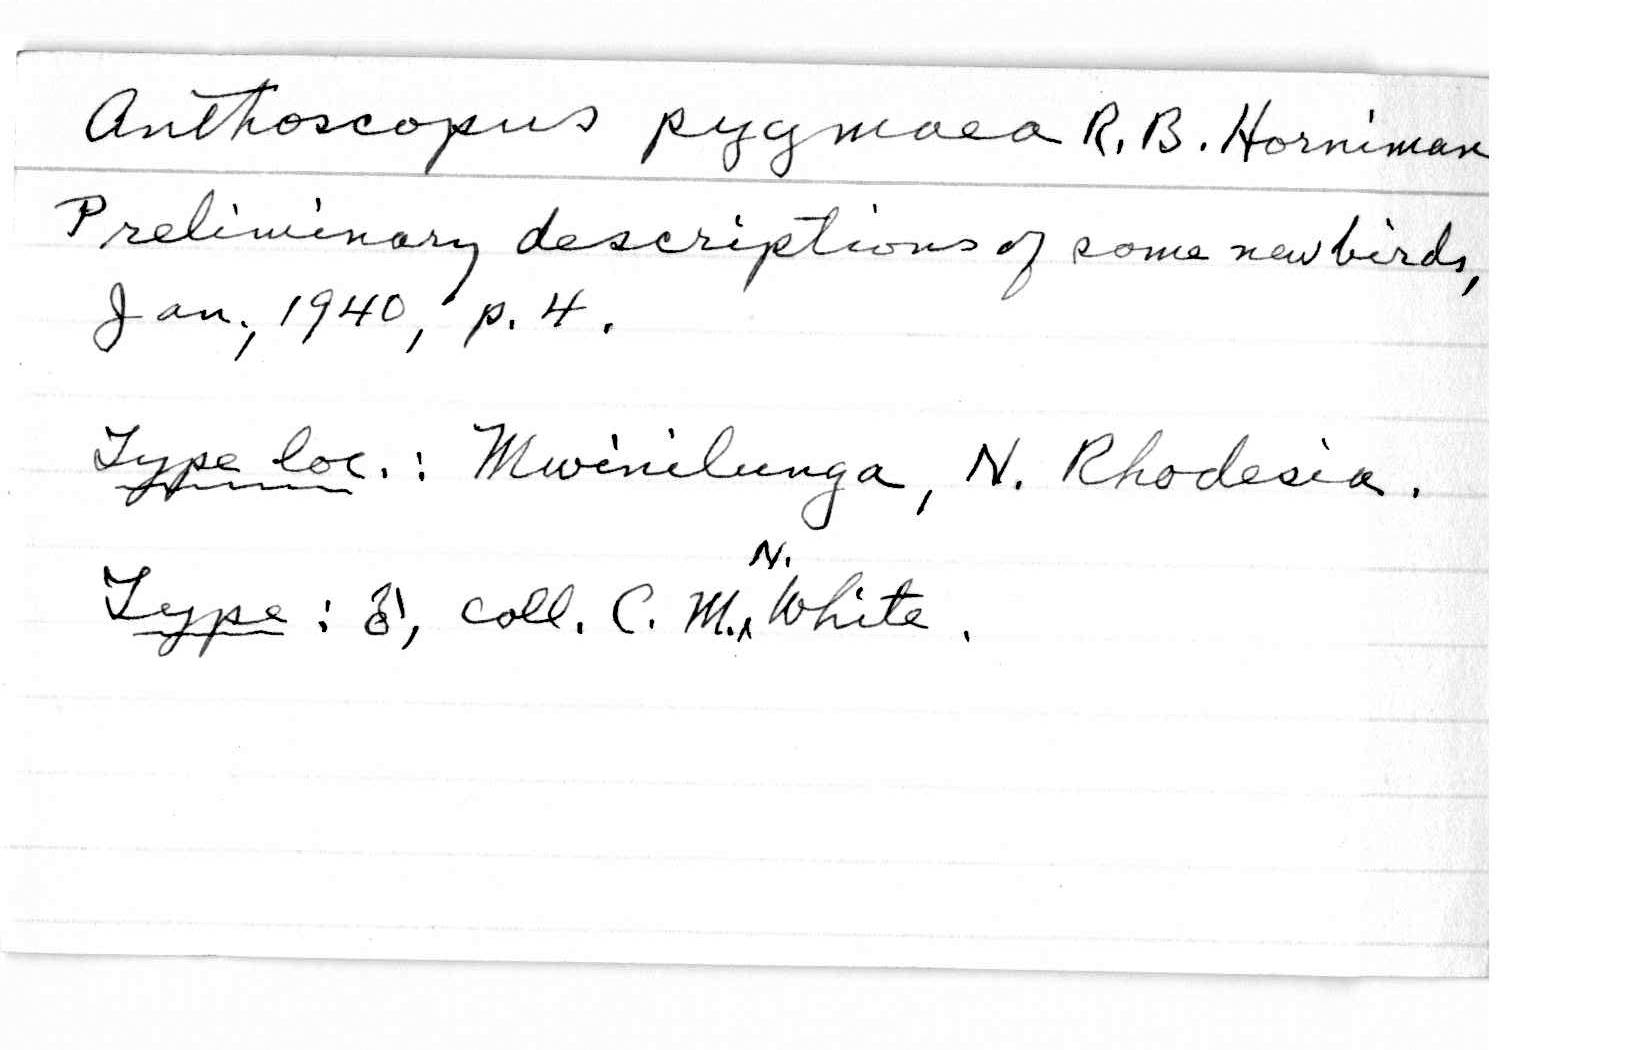 Anthoscopus pygmaea R. B. Horniman
Preliminary descriptions of some new birds,
Jan., 1940, p. 4.
Type loc.: Mwinilunga, N. Rhodesia.
Type: ♂, coll. C. M. N. White.